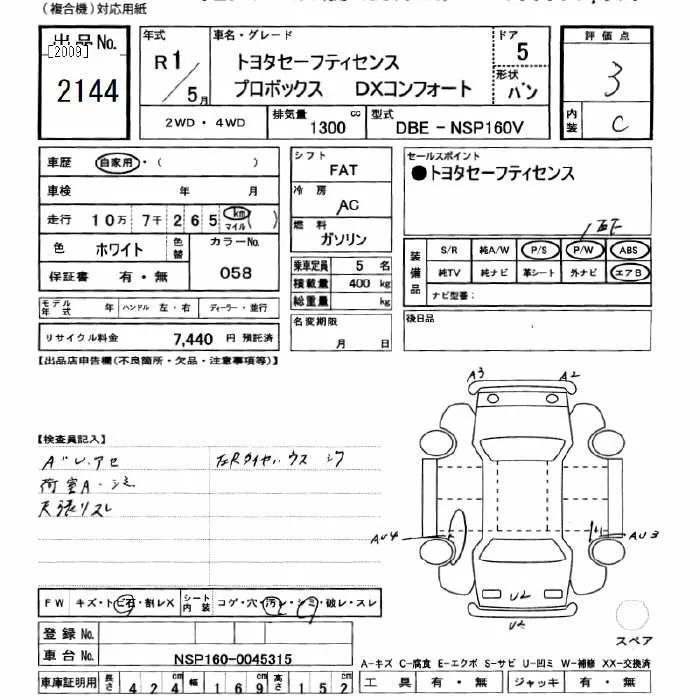 (複合機)対応用紙
出品No.
[2009]
2144
年式
R1/5月
車名・グレード
トヨタセーフティセンス
プロボックス DXコンフォート
ドア
5
形状
バン
評価点
3
内装
C
2WD・4WD
排気量 1300 cc
型式 DBE-NSP160V
車歴 自家用・( )
車検 年 月
走行 10万 7千 265 km マイル ( )
色 ホワイト 色替
カラーNo.
058
保証書 有・無
シフト
FAT
冷房
AC
燃料
ガソリン
セールスポイント
●トヨタセーフティセンス
装備品
S/R 純A/W P/S P/W ABS
純TV 純ナビ 革シート 外ナビ エアB
ナビ型番:
乗車定員 5 名
積載量 400 kg
総重量 kg
モデル年式 年 ハンドル 左・右 ディーラー・並行
リサイクル料金 7,440 円 預託済
名変期限
月 日
後日品
【出品店申告欄(不良箇所・欠品・注意事項等)】
A3 A2
【検査員記入】
Aﾞレ.アセ
荷室A・シミ
天張リスレ
左Rタイヤハウス シワ
AU4 AU3
U2
U2
FW キズ・トビ石・割レX シート内装 コゲ・穴・汚レ・シミ・破レ・スレ
登録No.
車台No. NSP160-0045315
車庫証明用 長さ 424 cm 幅 169 cm 高さ 152 cm
スペア
A-キズ C-腐食 E-エクボ S-サビ U-凹ミ W-補修 XX-交換済
工具 有・無 ジャッキ 有・無